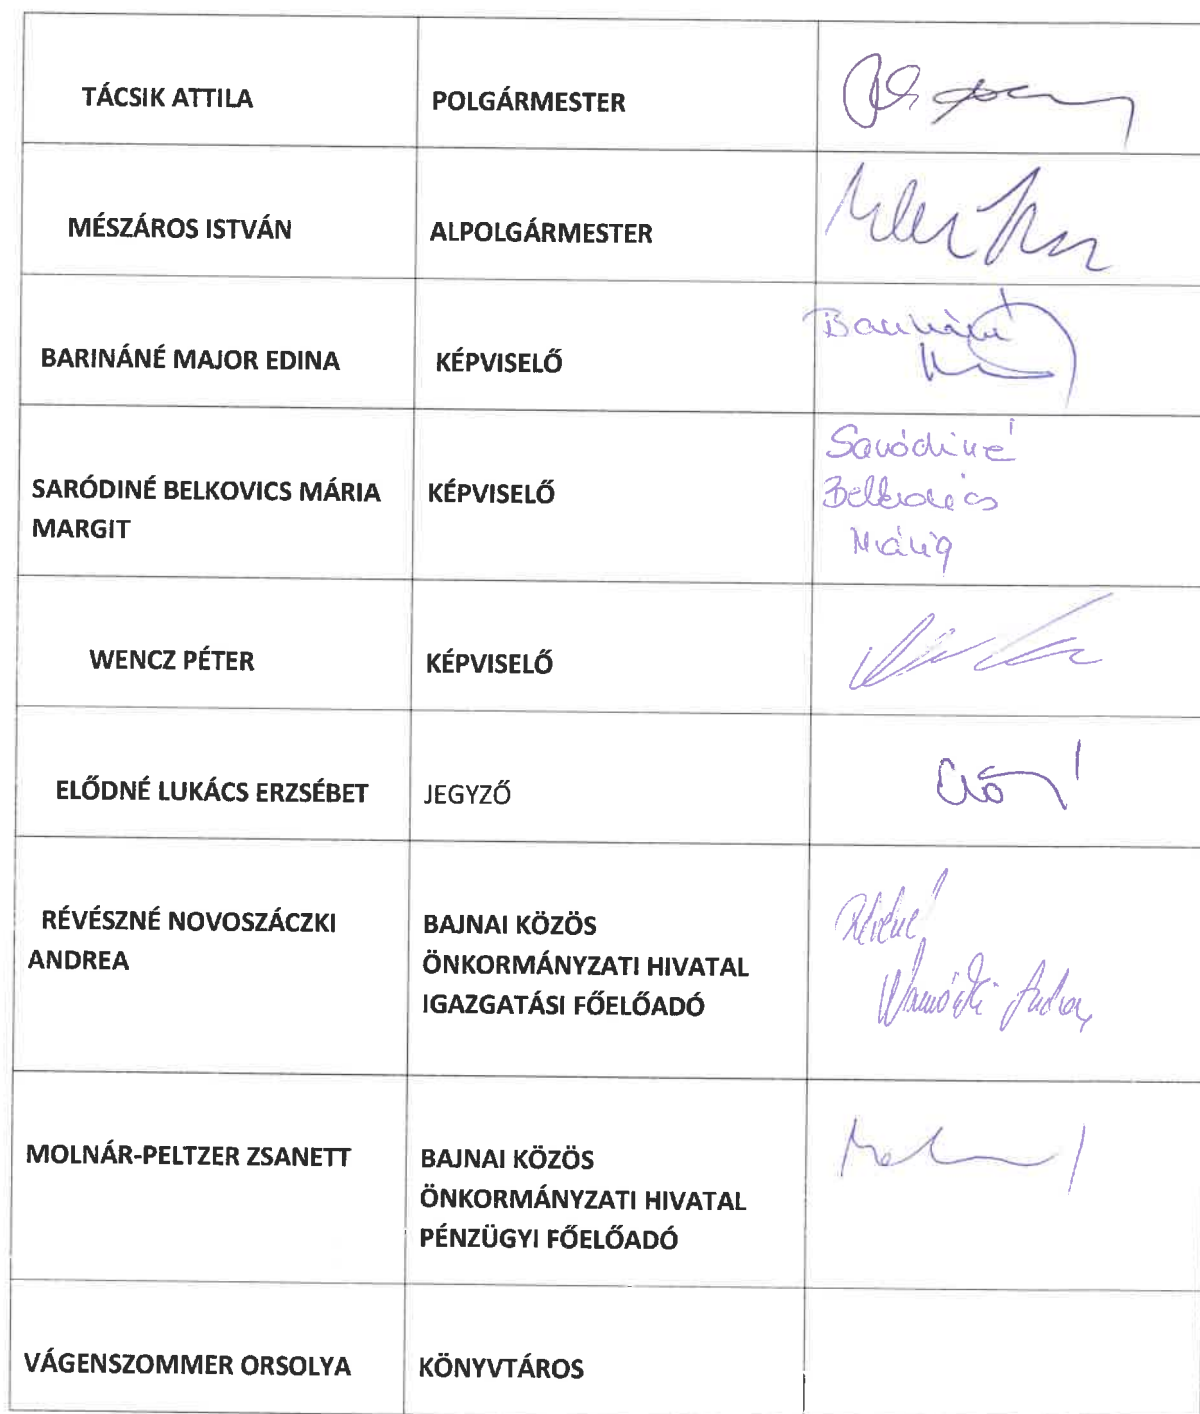 TÁCSIK ATTILA
POLGÁRMESTER
MÉSZÁROS ISTVÁN
ALPOLGÁRMESTER
BARINÁNÉ MAJOR EDINA
KÉPVISELŐ
Barináné
SARÓDINÉ BELKOVICS MÁRIA
MARGIT
KÉPVISELŐ
Saródiné
Belkovics
Mária
WENCZ PÉTER
KÉPVISELŐ
ELŐDNÉ LUKÁCS ERZSÉBET
JEGYZŐ
RÉVÉSZNÉ NOVOSZÁCZKI
ANDREA
BAJNAI KÖZÖS
ÖNKORMÁNYZATI HIVATAL
IGAZGATÁSI FŐELŐADÓ
MOLNÁR-PELTZER ZSANETT
BAJNAI KÖZÖS
ÖNKORMÁNYZATI HIVATAL
PÉNZÜGYI FŐELŐADÓ
VÁGENSZOMMER ORSOLYA
KÖNYVTÁROS